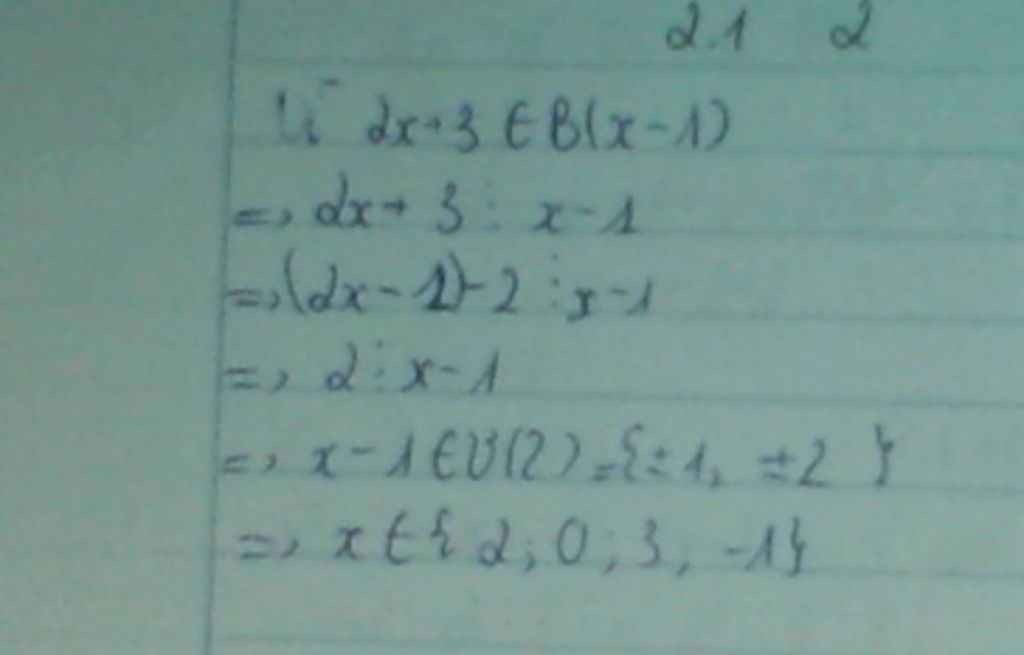 2.1 2
Vì 2x+3 ∈ B(x-1)
=> 2x+3 ⋮ x-1
=> (2x-1)-2 ⋮ x-1
=> 2 ⋮ x-1
=> x-1 ∈ Ư(2) = {±1, ±2}
=> x ∈ {2; 0; 3, -1}